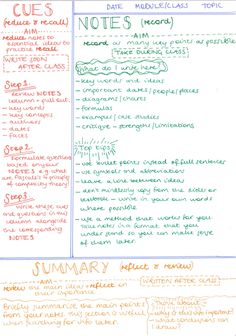 CUES
(reduce & recall)
AIM
reduce notes to
essential ideas to
practice recall
WRITE SOON
AFTER CLASS
Step 1
Review NOTES
column + pull out:
- key words
- key concepts
- authors
- dates
- facts
Step 2
Formulate questions
based on your
NOTES e.g. what
are
of complexity theory?
Step 3
Write these cues
and questions in this
column alongside
the corresponding
NOTES
DATE MODULE/CLASS TOPIC
NOTES (record)
AIM
record as many key points as possible
TAKE DURING CLASS
What do I write here?
- key words and ideas
- important dates/people/places
- diagrams/charts
- formulas
- examples/case studies
- critique - strengths/limitations
Top tips:
- use bullet points instead of full sentences
- use symbols and abbreviations
- leave a line between ideas
- don't mindlessly copy from the slides or
textbook - write in your own words
where possible
- use a method that works for you
Take notes in a format that you
understand so you can make sense
of them later
SUMMARY (reflect & review)
AIM
the main ideas + reflect on
their importance
WRITTEN AFTER CLASS
Briefly summarise the main points
from your notes. This section is useful
when searching for info later
Think about:
- why is this info important?
- what conclusions can
I draw?